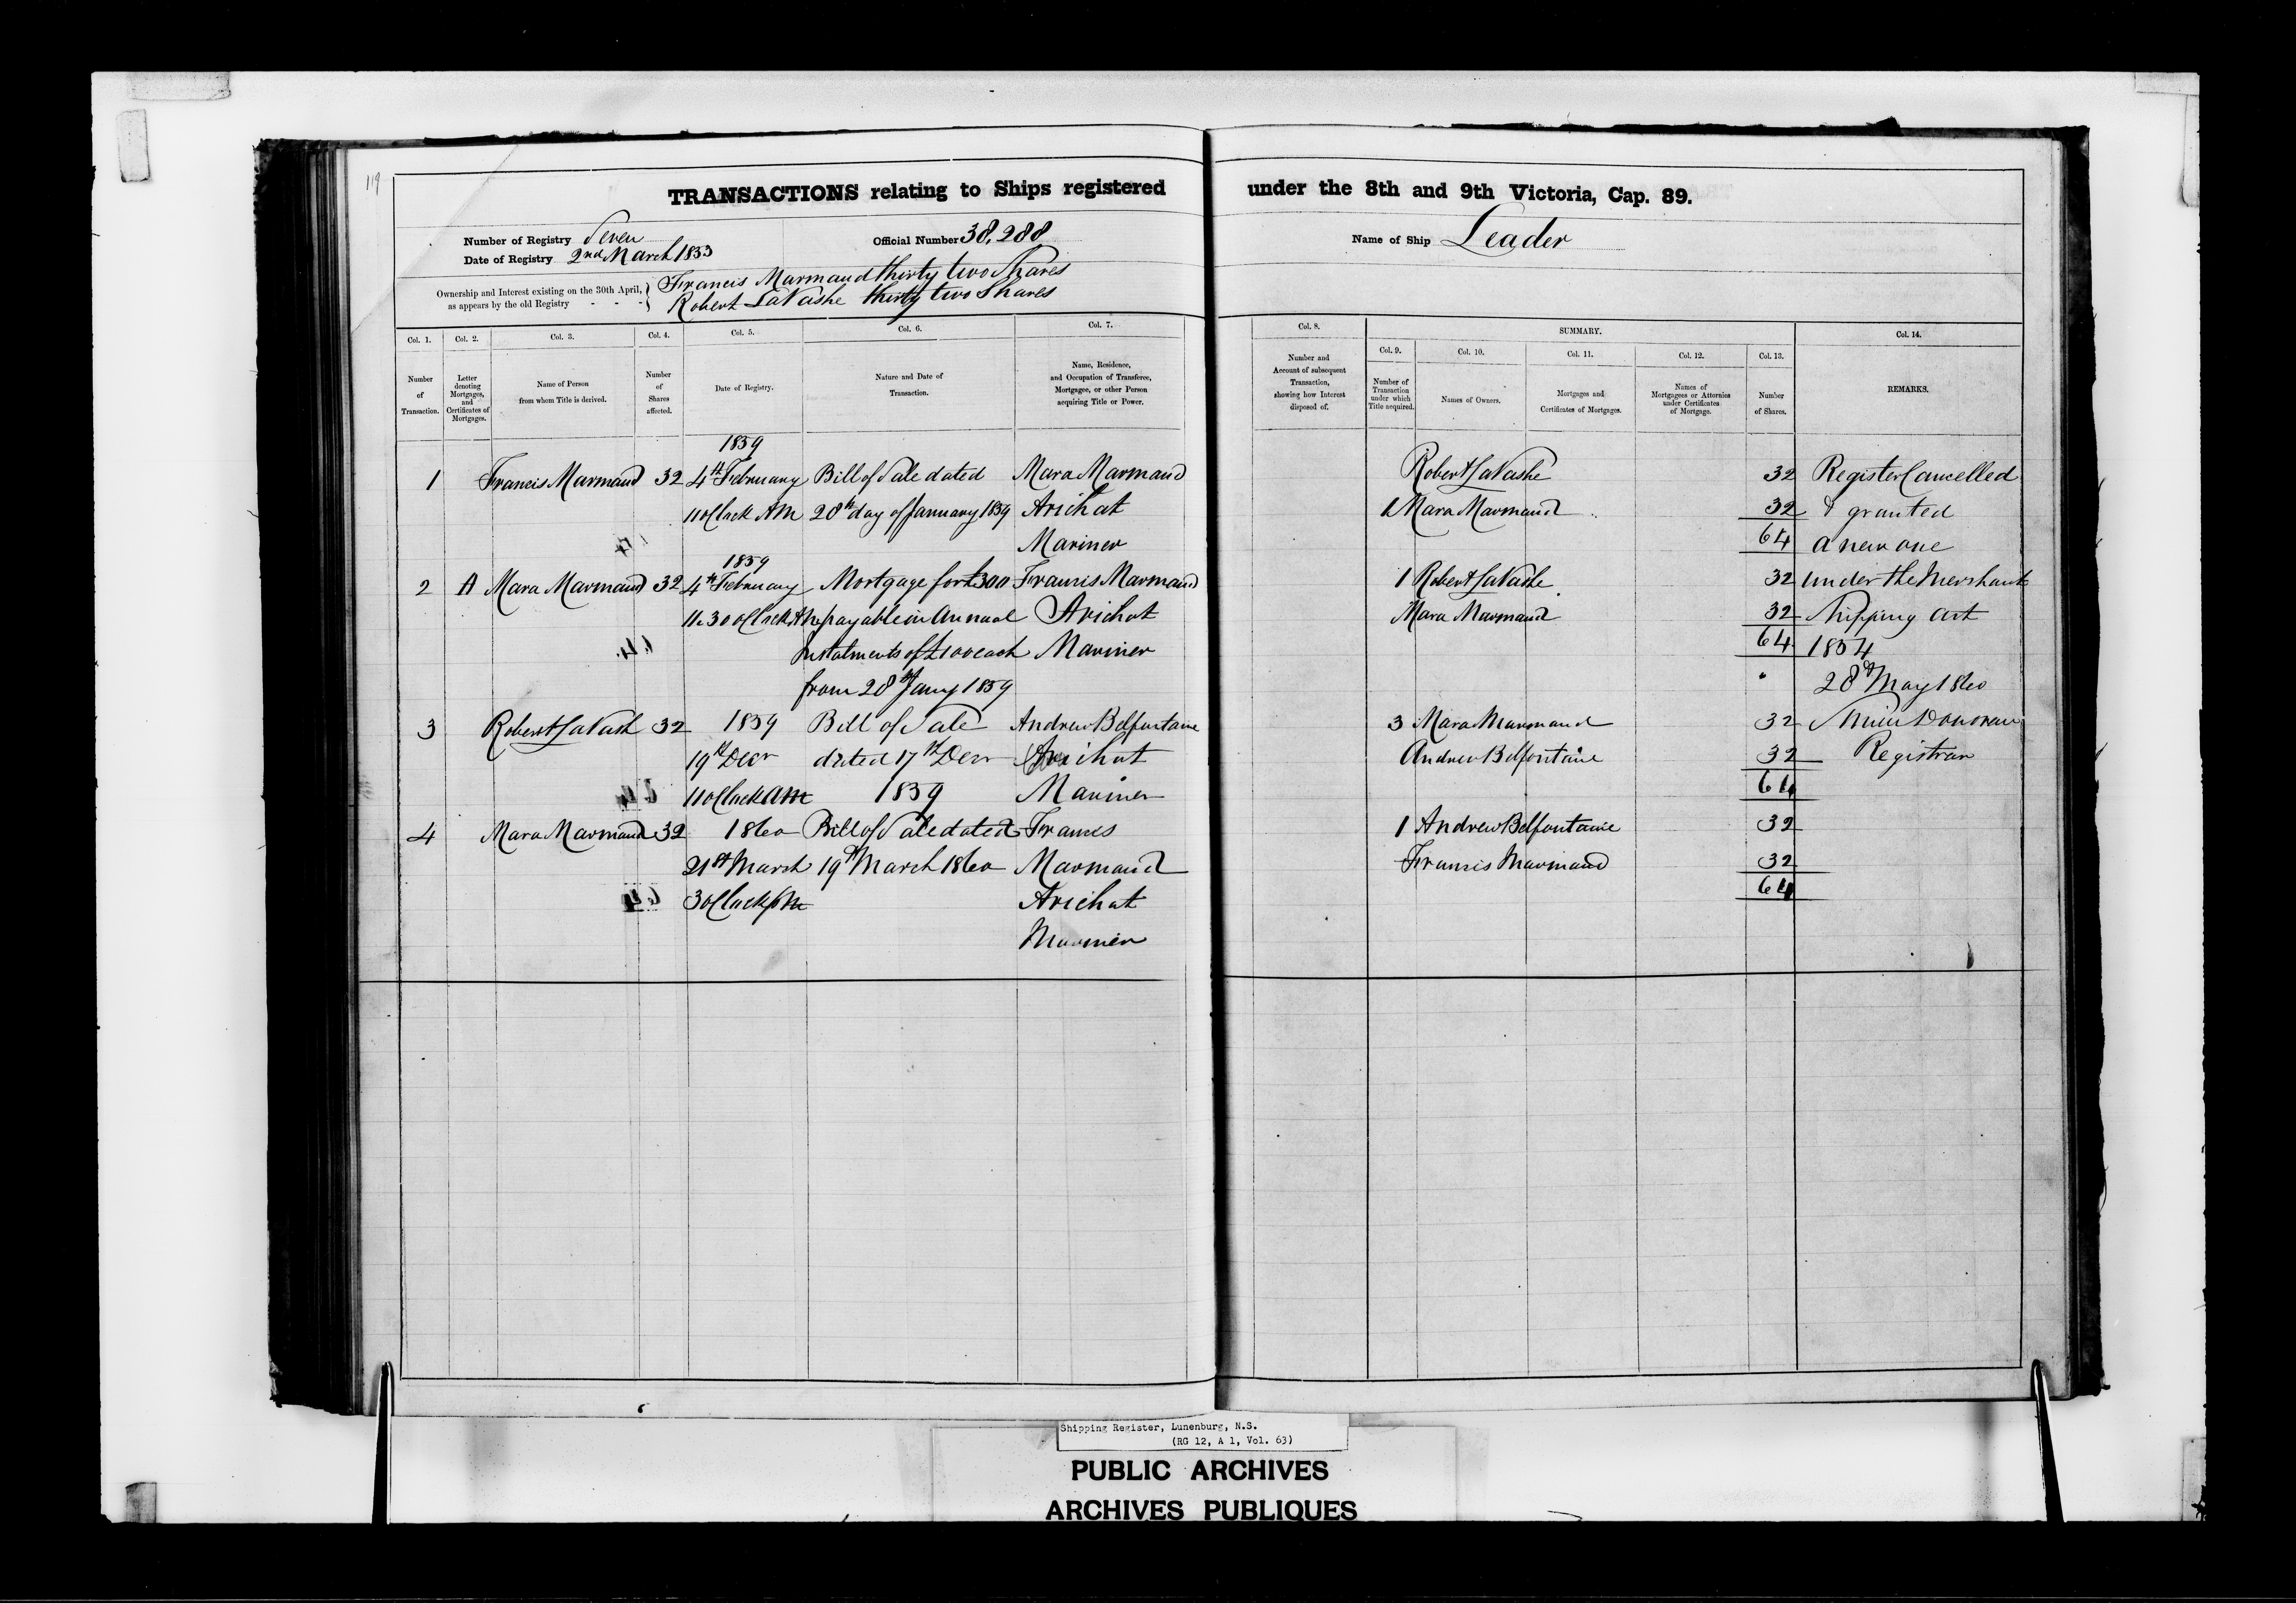 119
TRANSACTIONS relating to Ships registered under the 8th and 9th Victoria, Cap. 89.
Number of Registry Seven
Official Number 38,288
Name of Ship Leader
Date of Registry 2nd March 1853
Ownership and Interest existing on the 30th April, as appears by the old Registry - - -
Francis Marmaud thirty two Shares
Robert LaVashe thirty two Shares
Col. 1. Number of Transaction.
Col. 2. Letter denoting Mortgages, and Certificates of Mortgages.
Col. 3. Name of Person from whom Title is derived.
Col. 4. Number of Shares affected.
Col. 5. Date of Registry.
Col. 6. Nature and Date of Transaction.
Col. 7. Name, Residence, and Occupation of Transferee, Mortgagee, or other Person acquiring Title or Power.
Col. 8. Number and Account of subsequent Transaction, showing how Interest disposed of.
SUMMARY.
Col. 9. Number of Transaction under which Title acquired.
Col. 10. Names of Owners.
Col. 11. Mortgages and Certificates of Mortgages.
Col. 12. Names of Mortgagees or Attornies under Certificates of Mortgage.
Col. 13. Number of Shares.
Col. 14. REMARKS.
1859
1 Francis Marmaud 32 4th February Bill of Sale dated Mara Marmaud
11 oClock AM 28th day of January 1859 Arichat
Mariner
1859
2 A Mara Marmaud 32 4th February Mortgage for £300 Francis Marmaud
11.30 oClock AM payable in Annual Arichat
Instalments of £100 each Mariner
from 28th Jany 1859
3 Robert LaVash 32 1859 Bill of Sale Andrew Belfontaine
19th Decr dated 17th Decr Arichat
11 oClock am 1859 Mariner
4 Mara Marmaud 32 1860 Bill of Sale dated Francis
21st March 19th March 1860 Marmaud
3 oClock pm Arichat
Mariner
Robert LaVashe 32 Register Cancelled
1 Mara Marmaud 32 & granted
64 a new one
1 Robert LaVashe 32 under the Merchant
Mara Marmaud 32 Shipping Act
64 1854
28th May 1860
3 Mara Marmaud 32 Donovan
Andrew Belfontaine 32 Registrar
64
1 Andrew Belfontaine 32
Francis Marmaud 32
64
Shipping Register, Lunenburg, N.S.
(RG 12, A 1, Vol. 63)
PUBLIC ARCHIVES
ARCHIVES PUBLIQUES